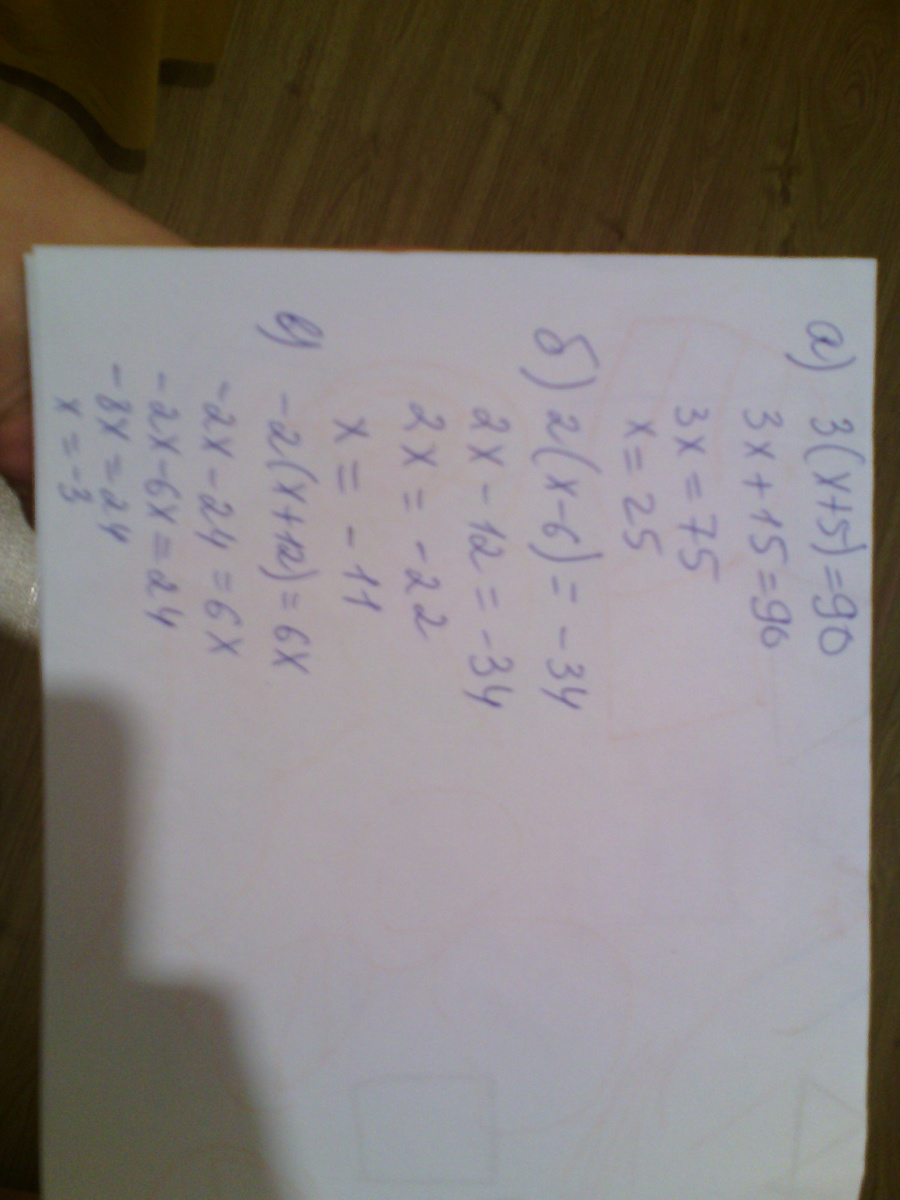 а) 3(x+5)=90
3x+15=90
3x=75
x=25
б) 2(x-6)=-34
2x-12=-34
2x=-22
x=-11
в) -2(x+12)=6x
-2x-24=6x
-2x-6x=24
-8x=24
x=-3